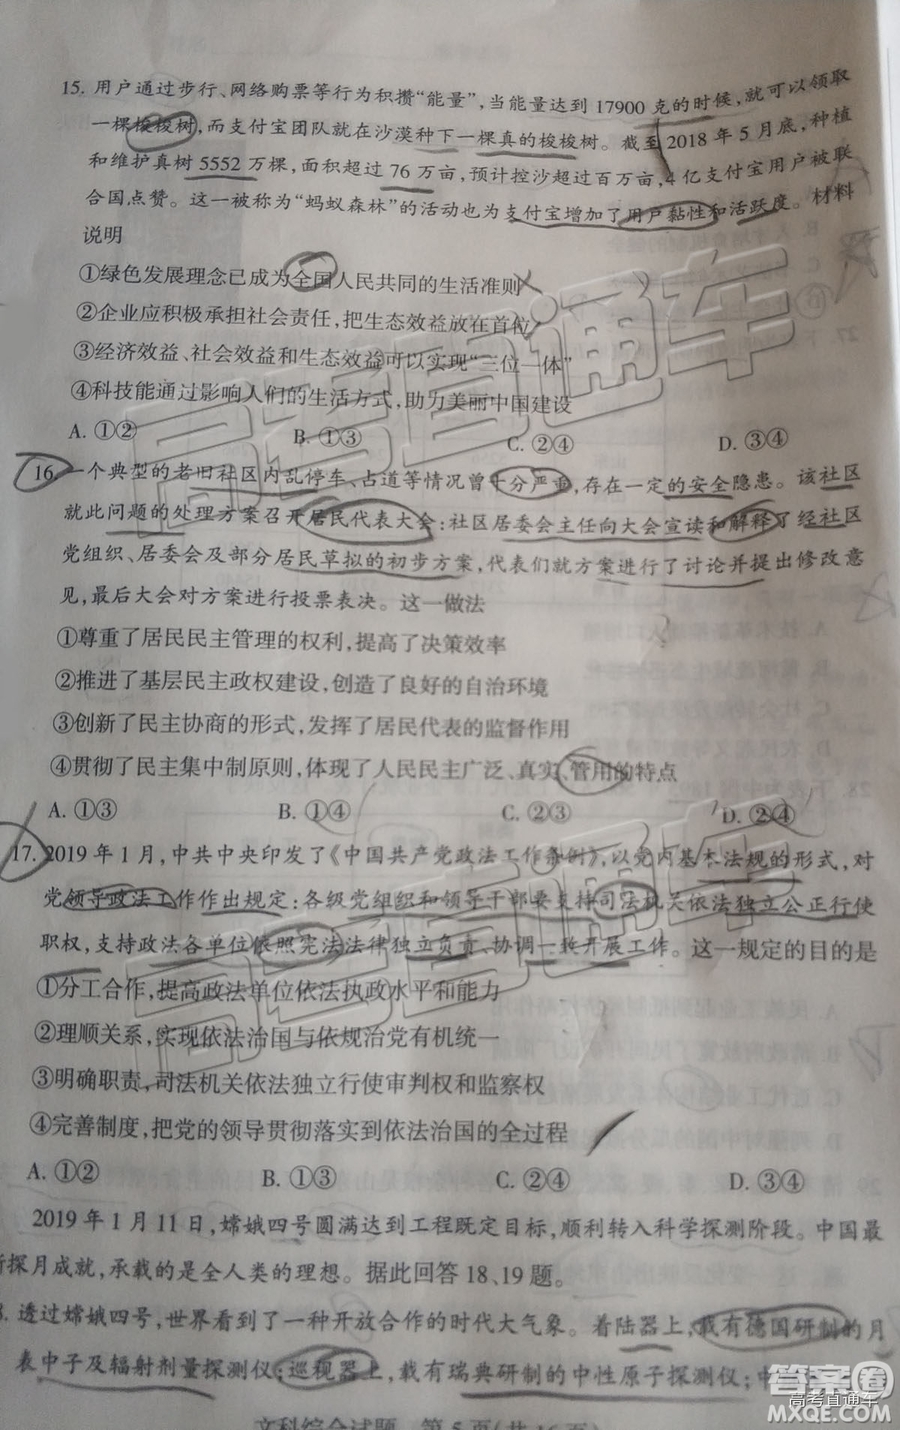 15. 用户通过步行、网络购票等行为积攒“能量”，当能量达到 17900 克的时候，就可以领取
一棵梭梭树，而支付宝团队就在沙漠种下一棵真的梭梭树。截至 2018 年 5 月底，种植
和维护真树 5552 万棵，面积超过 76 万亩，预计控沙超过百万亩，4 亿支付宝用户被联
合国点赞。这一被称为“蚂蚁森林”的活动也为支付宝增加了用户黏性和活跃度。材料
说明
①绿色发展理念已成为全国人民共同的生活准则
②企业应积极承担社会责任，把生态效益放在首位
③经济效益、社会效益和生态效益可以实现“三位一体”
④科技能通过影响人们的生活方式，助力美丽中国建设
A. ①② B. ①③ C. ②④ D. ③④
16. 一个典型的老旧社区内乱停车、占道等情况曾十分严重，存在一定的安全隐患。该社区
就此问题的处理方案召开居民代表大会：社区居委会主任向大会宣读和解释了经社区
党组织、居委会及部分居民草拟的初步方案，代表们就方案进行了讨论并提出修改意
见，最后大会对方案进行投票表决。这一做法
①尊重了居民民主管理的权利，提高了决策效率
②推进了基层民主政权建设，创造了良好的自治环境
③创新了民主协商的形式，发挥了居民代表的监督作用
④贯彻了民主集中制原则，体现了人民民主广泛、真实、管用的特点
A. ①③ B. ①④ C. ②③ D. ②④
17. 2019 年 1 月，中共中央印发了《中国共产党政法工作条例》，以党内基本法规的形式，对
党领导政法工作作出规定：各级党组织和领导干部要支持司法机关依法独立公正行使
职权，支持政法各单位依照宪法法律独立负责、协调一致开展工作。这一规定的目的是
①分工合作，提高政法单位依法执政水平和能力
②理顺关系，实现依法治国与依规治党有机统一
③明确职责，司法机关依法独立行使审判权和监察权
④完善制度，把党的领导贯彻落实到依法治国的全过程
A. ①② B. ①③ C. ②④ D. ③④
2019 年 1 月 11 日，嫦娥四号圆满达到工程既定目标，顺利转入科学探测阶段。中国最
新探月成就，承载的是全人类的理想。据此回答 18、19 题。
8. 透过嫦娥四号，世界看到了一种开放合作的时代大气象。着陆器上，载有德国研制的月
表中子及辐射剂量探测仪；巡视器上，载有瑞典研制的中性原子探测仪；中
文科综合试题 第 5 页（共 16 页）
高考直通车
高考直通车
高考直通车
答案圈
MXQE.COM